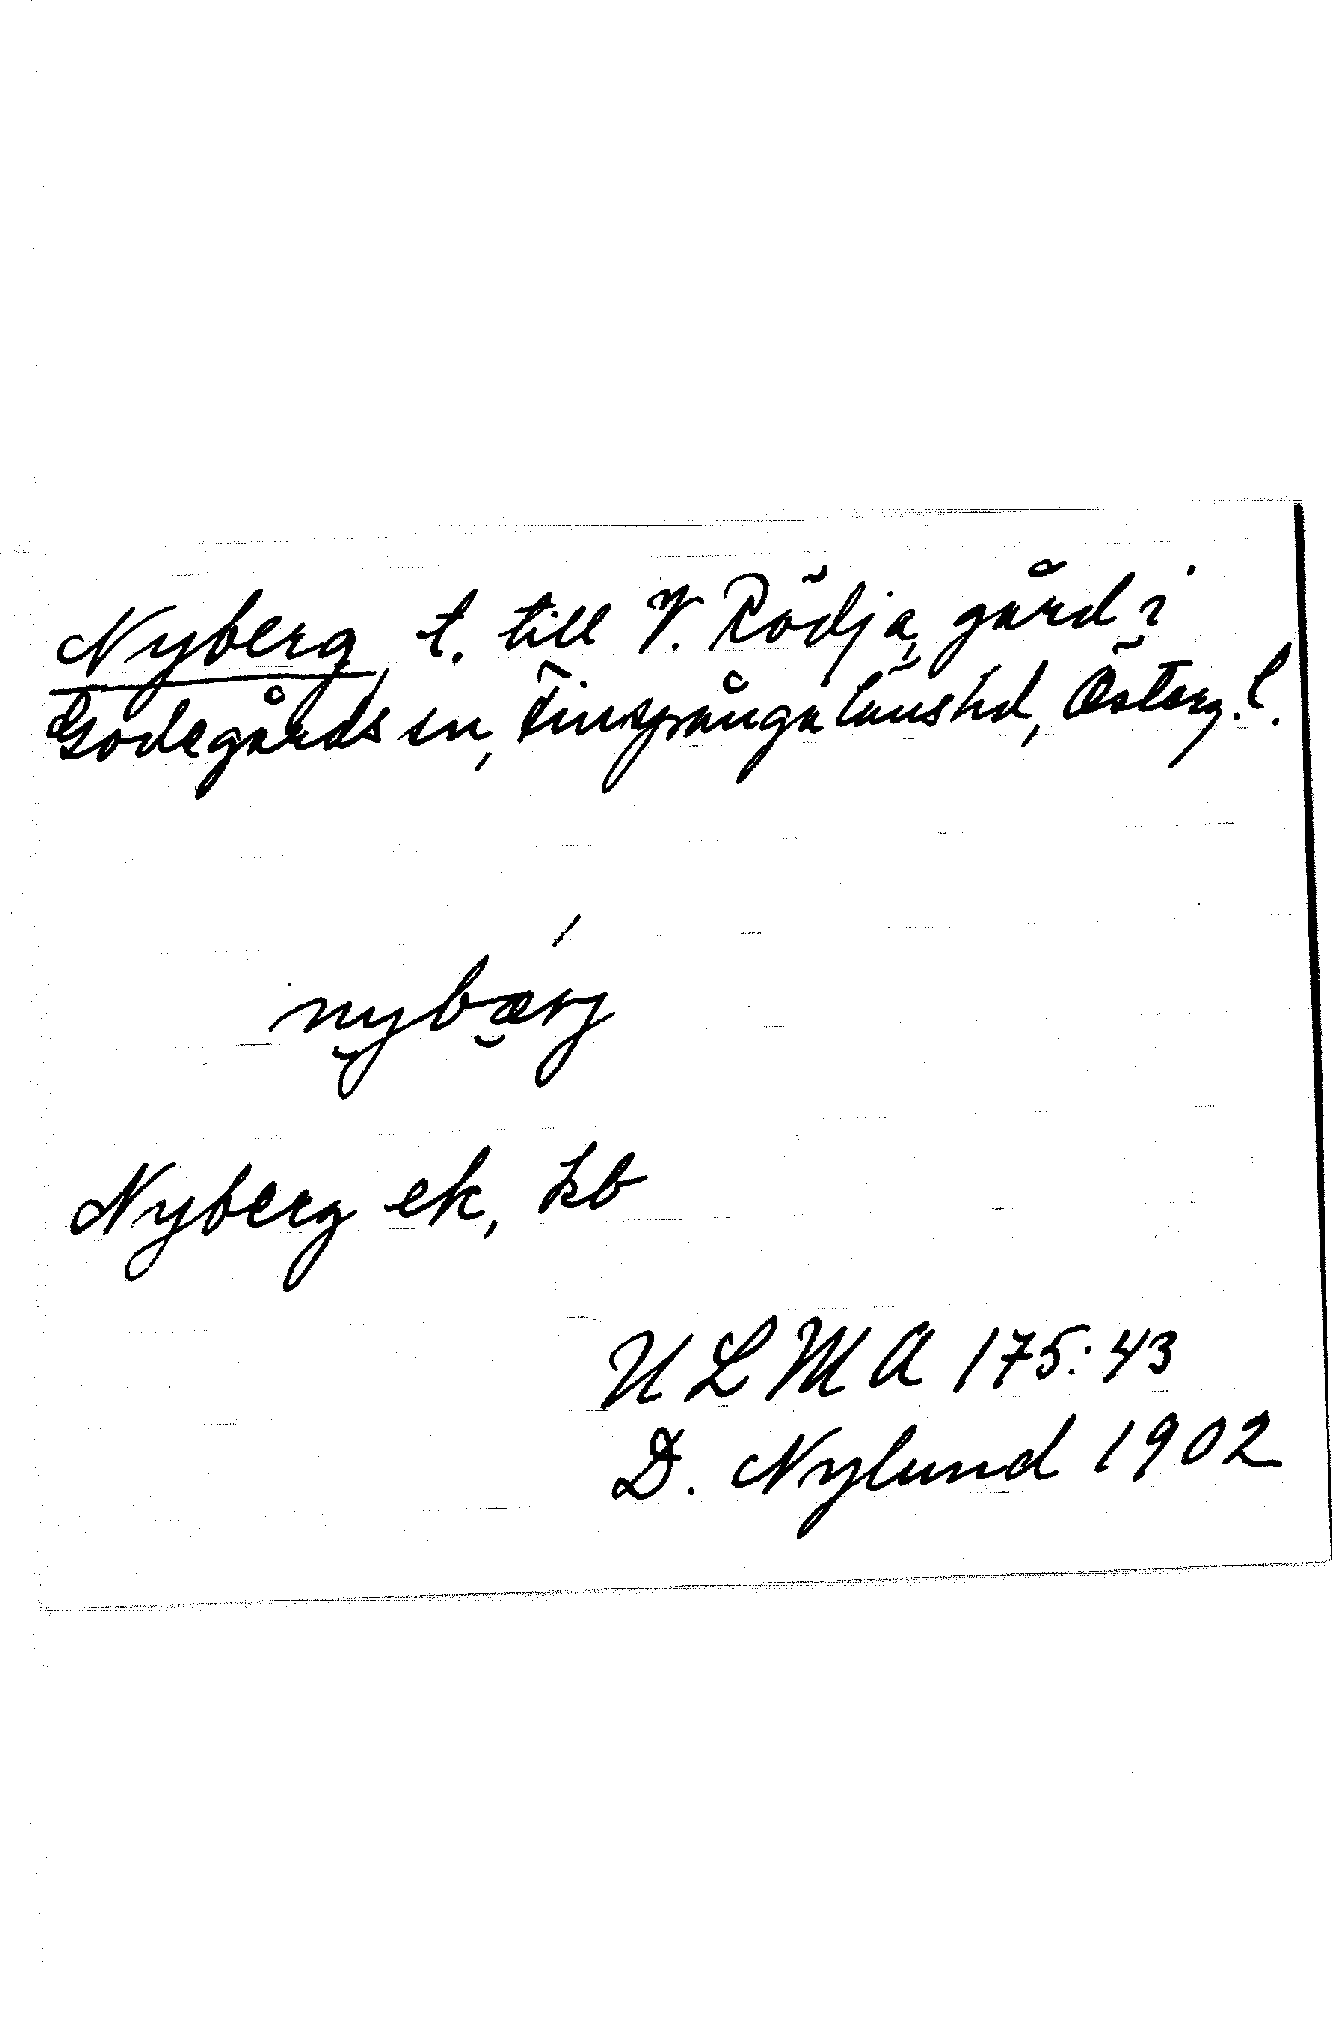 Nyberg, t. till V. Rödja, gård i
Godegårds sn, Finspånga läns hd, Österg. l.
nybærj
Nyberg ek, kb
ULMA 175:43
D. Nylund 1902